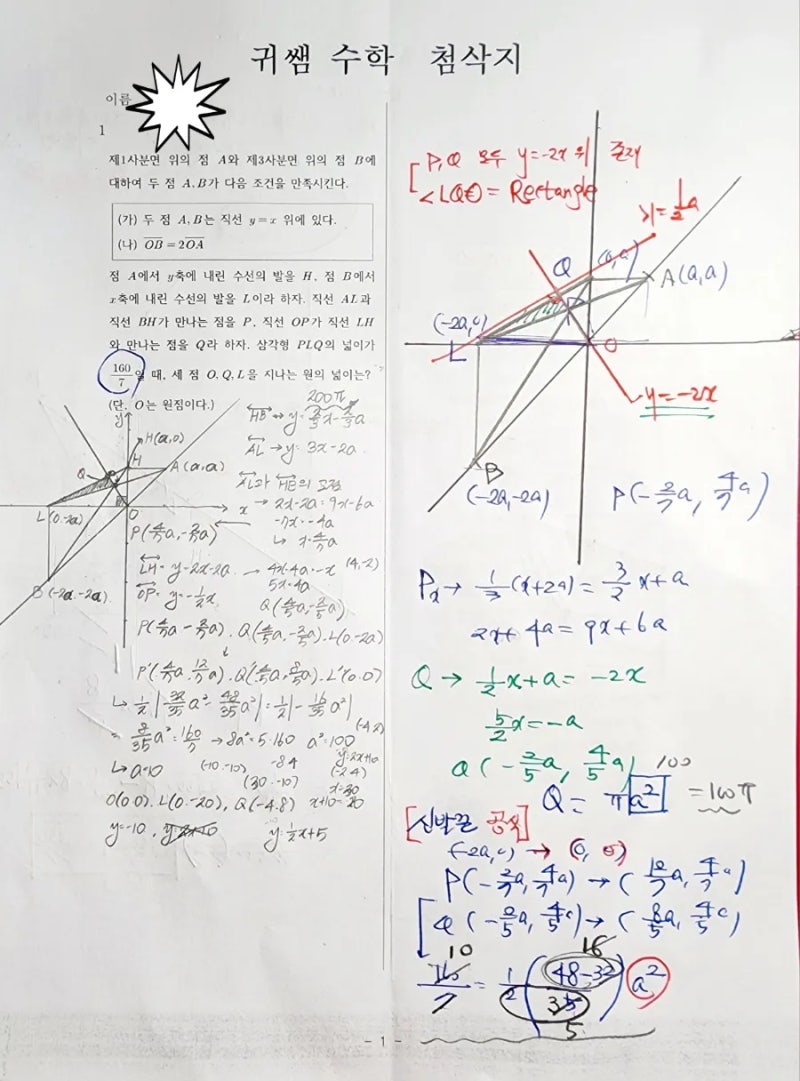 귀쌤 수학 첨삭지
이름
1
제1사분면 위의 점 A와 제3사분면 위의 점 B에
대하여 두 점 A, B가 다음 조건을 만족시킨다.
(가) 두 점 A, B는 직선 y=x 위에 있다.
(나) \overline{OB}=2\overline{OA}
점 A에서 y축에 내린 수선의 발을 H, 점 B에서
x축에 내린 수선의 발을 L이라 하자. 직선 AL과
직선 BH가 만나는 점을 P, 직선 OP가 직선 LH
와 만나는 점을 Q라 하자. 삼각형 PLQ의 넓이가
160/7일 때, 세 점 O, Q, L을 지나는 원의 넓이는?
(단, O는 원점이다.)
200π
y
H(a,0)
H
A(a,a)
Q
L(0-2a)
O
x
B(-2a,-2a)
AL → y= 3x-2a
→ 2x-2a=9x-6a
-7x=-4a
P(4/7a,-2/7a)
LH= y=2x-2a → 4x-4a=-x (4,-2)
5x=4a
OP= y=-1/2x
Q(4/5a,-2/5a)
P(4/7a -2/7a). Q(4/5a,-2/5a). L(0-2a)
P'(4/7a, 12/7a). Q'(4/5a, 8/5a). L'(0.0)
= 8/35a²=160/7 → 8a²=5·160 a²=100
↳ a=10 (-10.-10)
(30.-10)
(-2.4)
O(0.0). L(0.-20), Q(-4.8) x+10=20
y=-10, y=1/2x+5
P,Q 모두 y=-2x 위 존재
<LQO = Rectangle
Q
(0,a)
A(a,a)
P
(-2a,0)
L
O
y=-2x
B
(-2a,-2a)
P(-2/7a, 4/7a)
Px → 1/3(x+2a)=3/2x+a
2x+4a=9x+6a
Q → 1/2x+a=-2x
5/2x=-a
Q(-2/5a, 4/5a)
100
Q= πa² =100π
[신발끈 공식]
(-2a,0) → (0,0)
P(-2/7a, 4/7a) → (12/7a, 4/7a)
Q(-2/5a, 4/5a) → (8/5a, 4/5a)
10 16
160/7 = 1/2((48-32)/35)a²
5
- 1 -